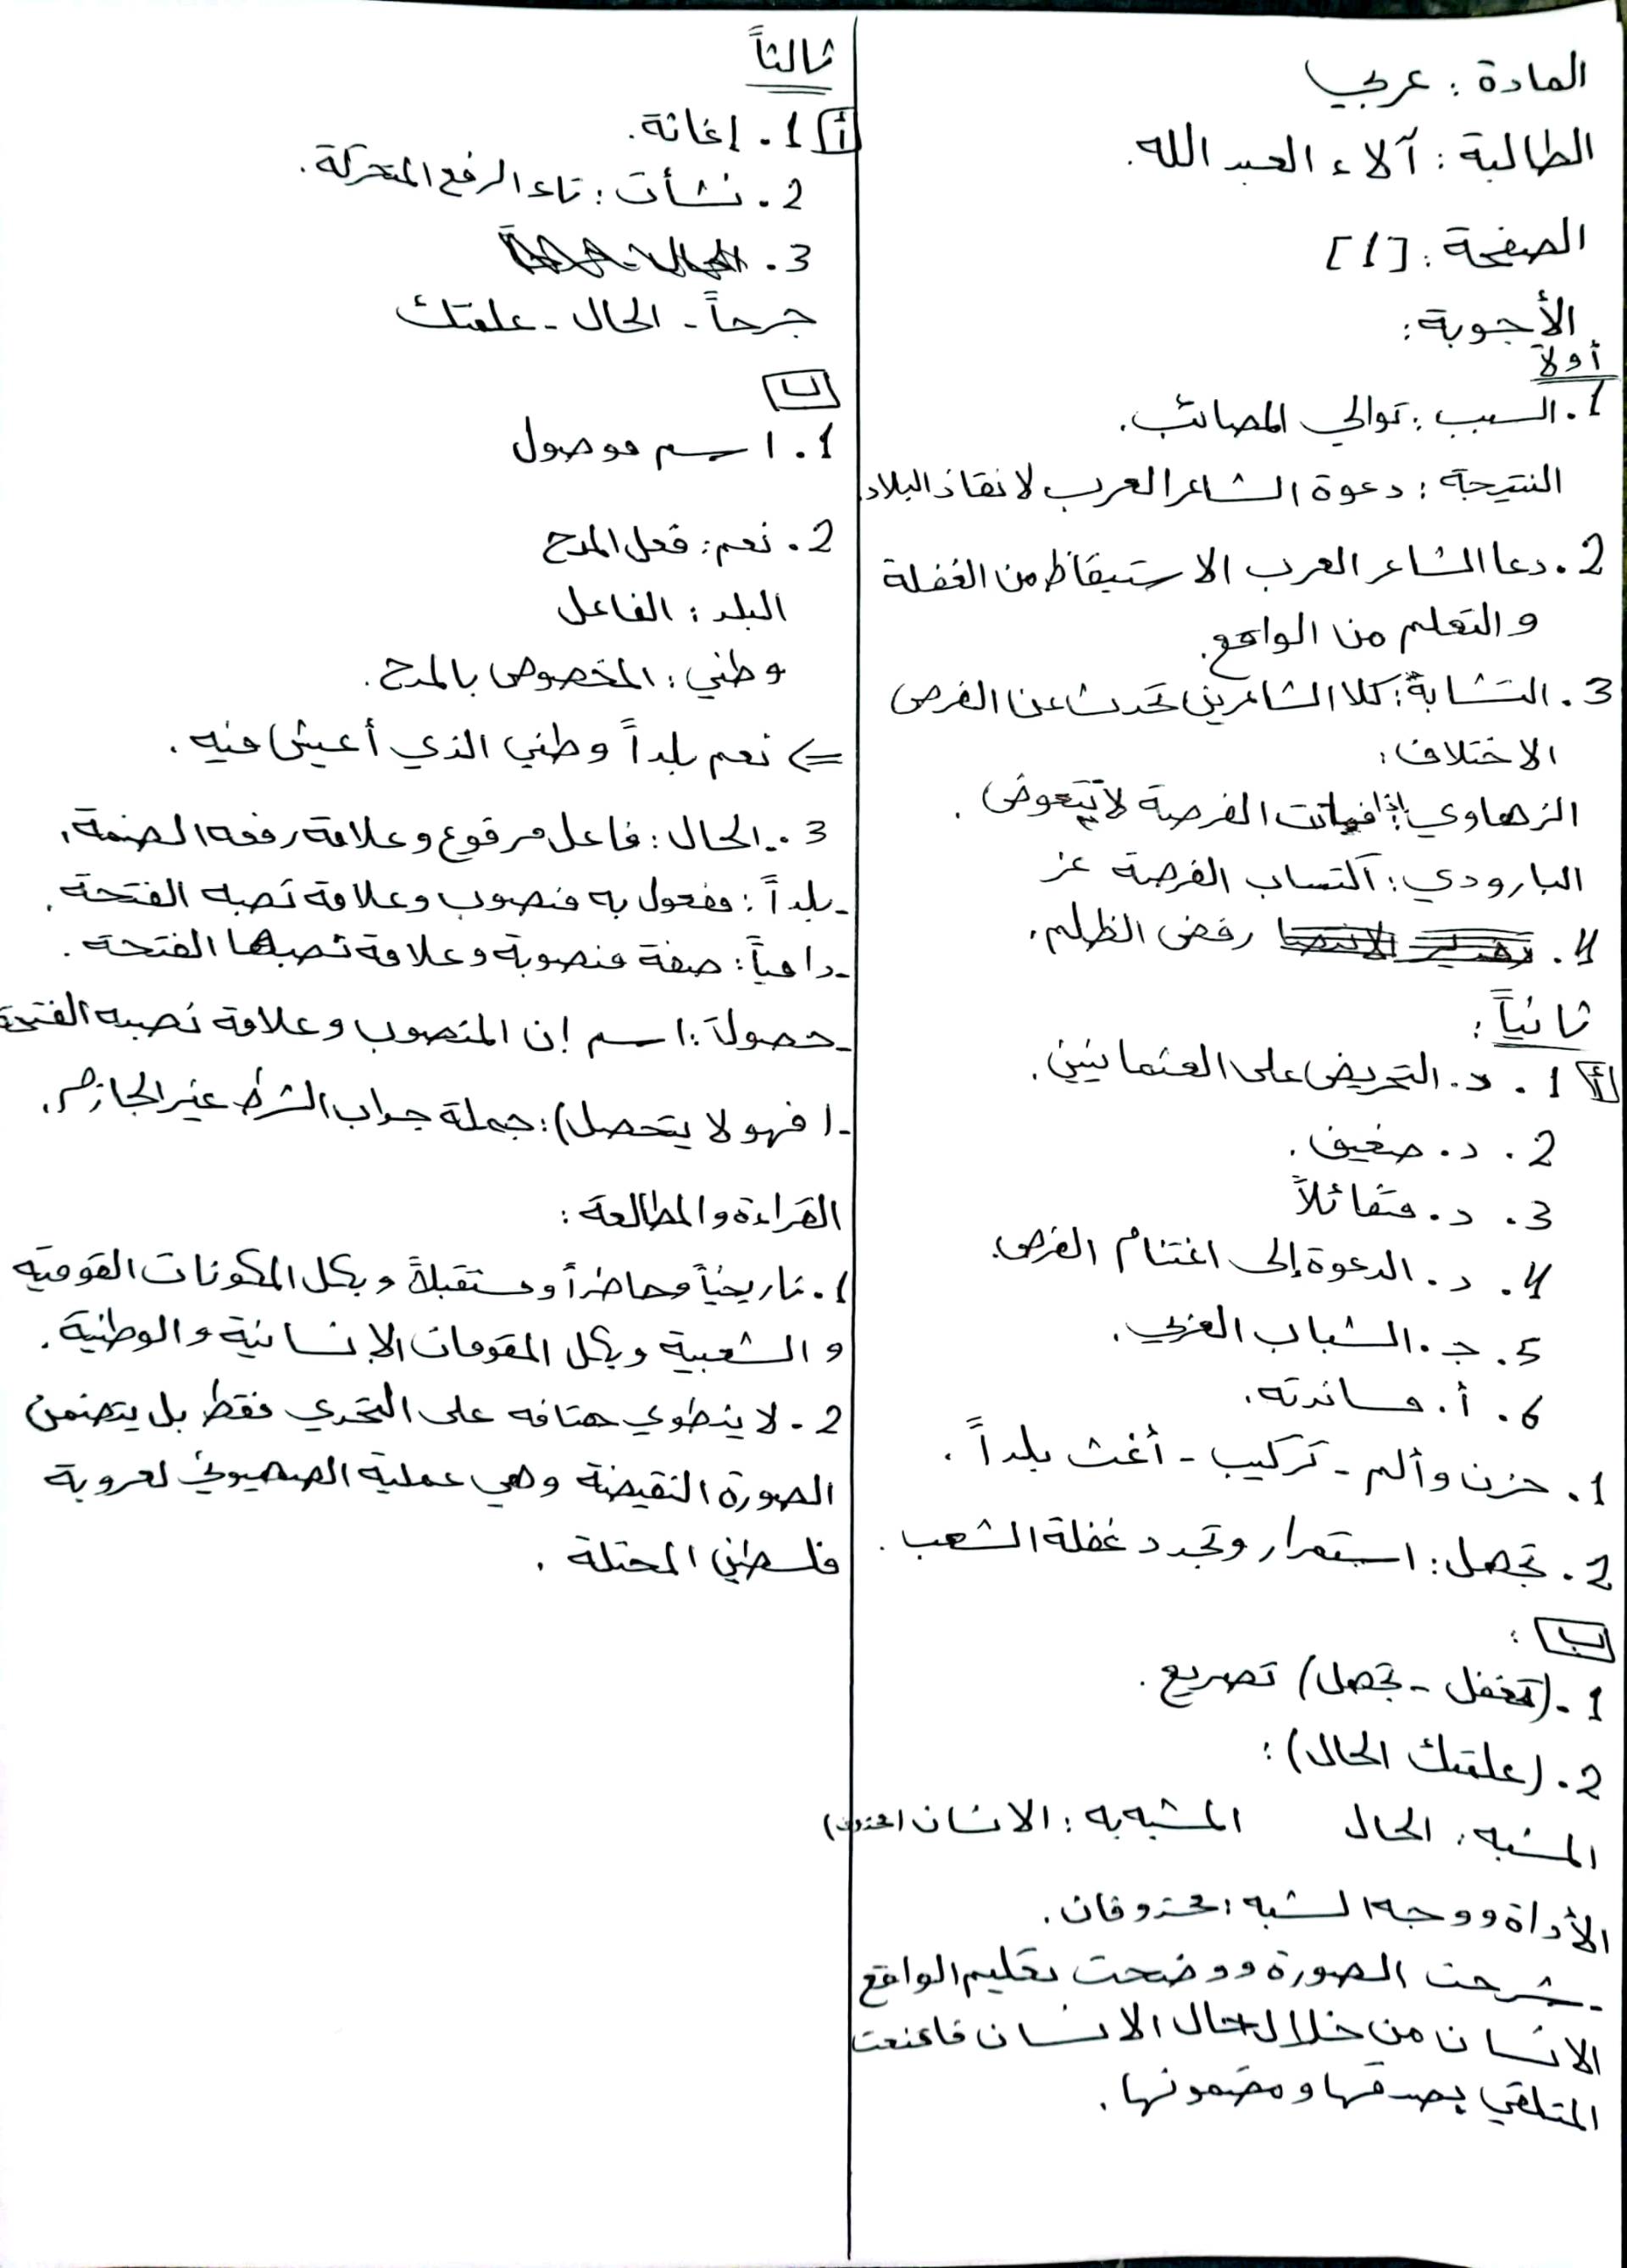 المادة : عربي
الطالبة : آلاء العبد الله.
الصفحة : [1]
الأجوبة :
أولاً
1. السبب : توالي المصائب.
النتيجة : دعوة الشاعر العرب لانقاذ البلاد
2. دعا الشاعر العرب الاستيقاظ من الغفلة
والتعلم من الواقع.
3. التشابة : كلا الشاعرين تحدث عن الفرص
الاختلاف :
الزهاوي : إذا فاتت الفرصة لا تتعوض.
البارودي : اكتساب الفرصة عز
4. رفض الظلم.
ثانياً :
أ 1. د. التحريض على العثمانيين.
2. د. ضعيف.
3. د. متفائلاً
4. د. الدعوة إلى اغتنام الفرص.
5. جـ. الشباب العربي.
6. أ. مساندته.
1. حزن وألم - تركيب - أغث بلداً.
2. تجهل : استمرار وتجدد غفلة الشعب.
ب :
1. (تغفل - تجهل) تصريع.
2. (علمتك الحال) :
المشبه : الحال المشبه به : الانسان (محذوف)
الأداة ووجه الشبه : محذوفان.
- شرحت الصورة ووضحت تعليم الواقع
الانسان من خلال حال الانسان فاقنعت
المتلقي بصدقها ومضمونها.
ثالثاً
أ 1. إغاثة.
2. نشأت : تاء الرفع المتحركة.
3.
جرحاً - الحال - علمتك
ب
1. اسم موصول
2. نعم : فعل المدح
البلد : الفاعل
وطني : المخصوص بالمدح.
⇐ نعم بلداً وطني الذي أعيش فيه.
3. - الحال : فاعل مرفوع وعلامة رفعه الضمة.
- بلداً : مفعول به منصوب وعلامة نصبه الفتحة.
- دامياً : صفة منصوبة وعلامة نصبها الفتحة.
- حصولَ : اسم إن المنصوب وعلامة نصبه الفتحة
- (فهو لا يتحصل) : جملة جواب الشرط غير الجازم.
القراءة والمطالعة :
1. تاريخياً وحاضراً ومستقبلاً وبكل المكونات القومية
والشعبية وبكل المقومات الإنسانية والوطنية.
2. لا ينطوي هتافه على التحدي فقط بل يتضمن
الصورة النقيضة وهي عملية الصهيوني لعروبة
فلسطين المحتلة.